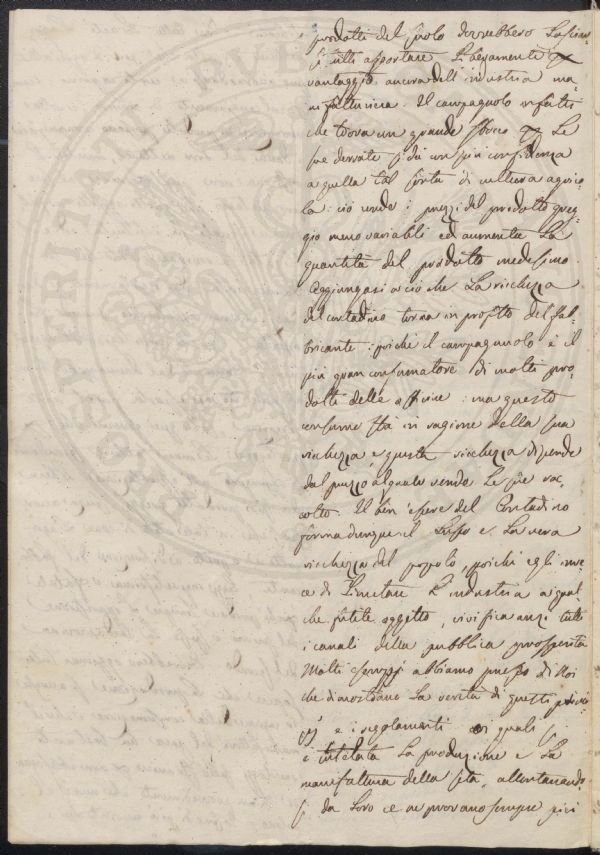 prodotti del suolo dovrebbero lasciar-
si tutti asportare liberamente
vantaggio ancora dell'industria ma-
nifatturiera. Il campagnolo infatti
che trova un grande sfoco Le
sue derrate si dà con più confidenza
a quella tal sorta di cultura agrico-
la: ciò rende i prezzi del prodotto greg-
gio meno variabili ed aumenta La
quantità del prodotto medesimo.
Aggiungasi a ciò che La ricchezza
del contadino torna in profitto del fab-
bricante: poiche il campagnuolo è il
più gran consumatore di molti pro-
dotti delle officine: ma questo
consumo sta in ragione della sua
ricchezza e questa ricchezza dipende
dal prezzo al quale vende Le sue rac-
colte. Il ben'essere del Contadino
forma dunque il Lusso e La vera
ricchezza del popolo, poichè egli inve-
ce di Limitare L'industria a qual-
che futile oggetto, vivifica anzi tutti
i canali della pubblica prosperità
Molti esempj abbiamo presso di Noi
che dimostrano La verità di questi princi-
pj e i regolamenti quali
è intelata La produzione e La
manifattura della seta, allontanando-
si da Loro ce ne provano sempre più